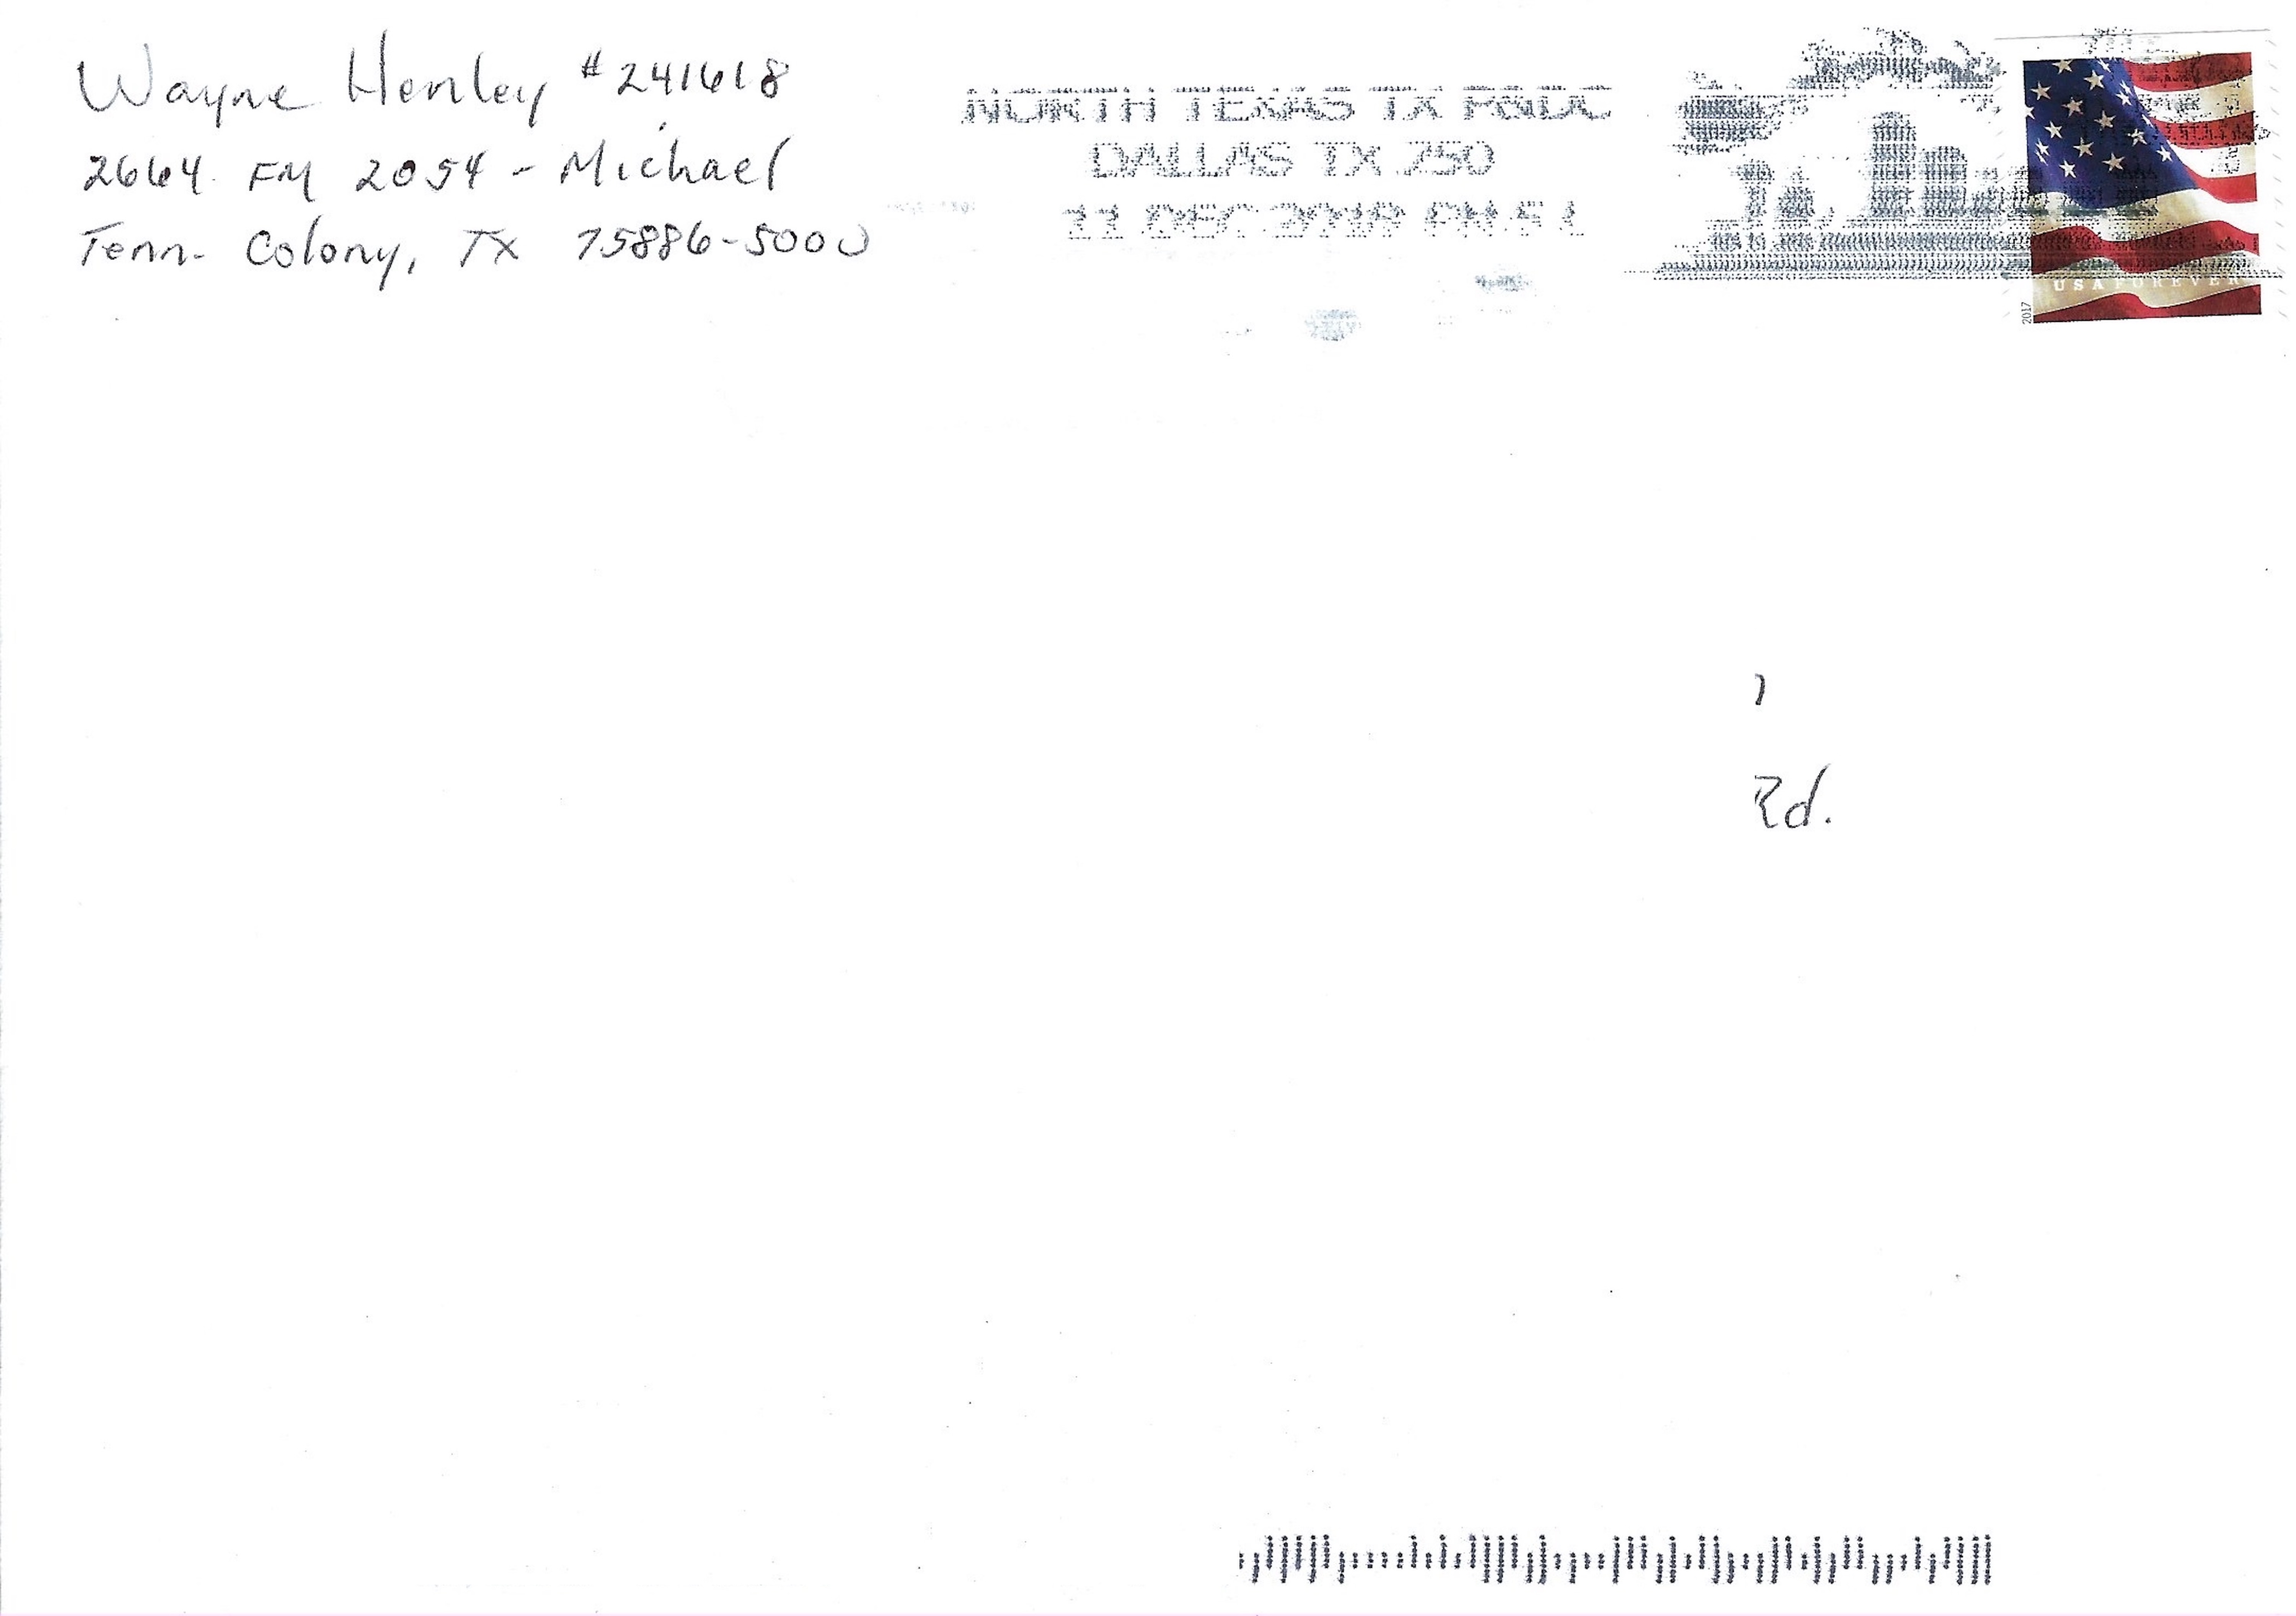 Wayne Henley #241618
2664 FM 2054 - Michael
Tenn. Colony, TX 75886-5000
NORTH TEXAS TX P&DC
DALLAS TX 750
11 DEC 2019 PM 5 L
USA FOREVER
2017
Rd.